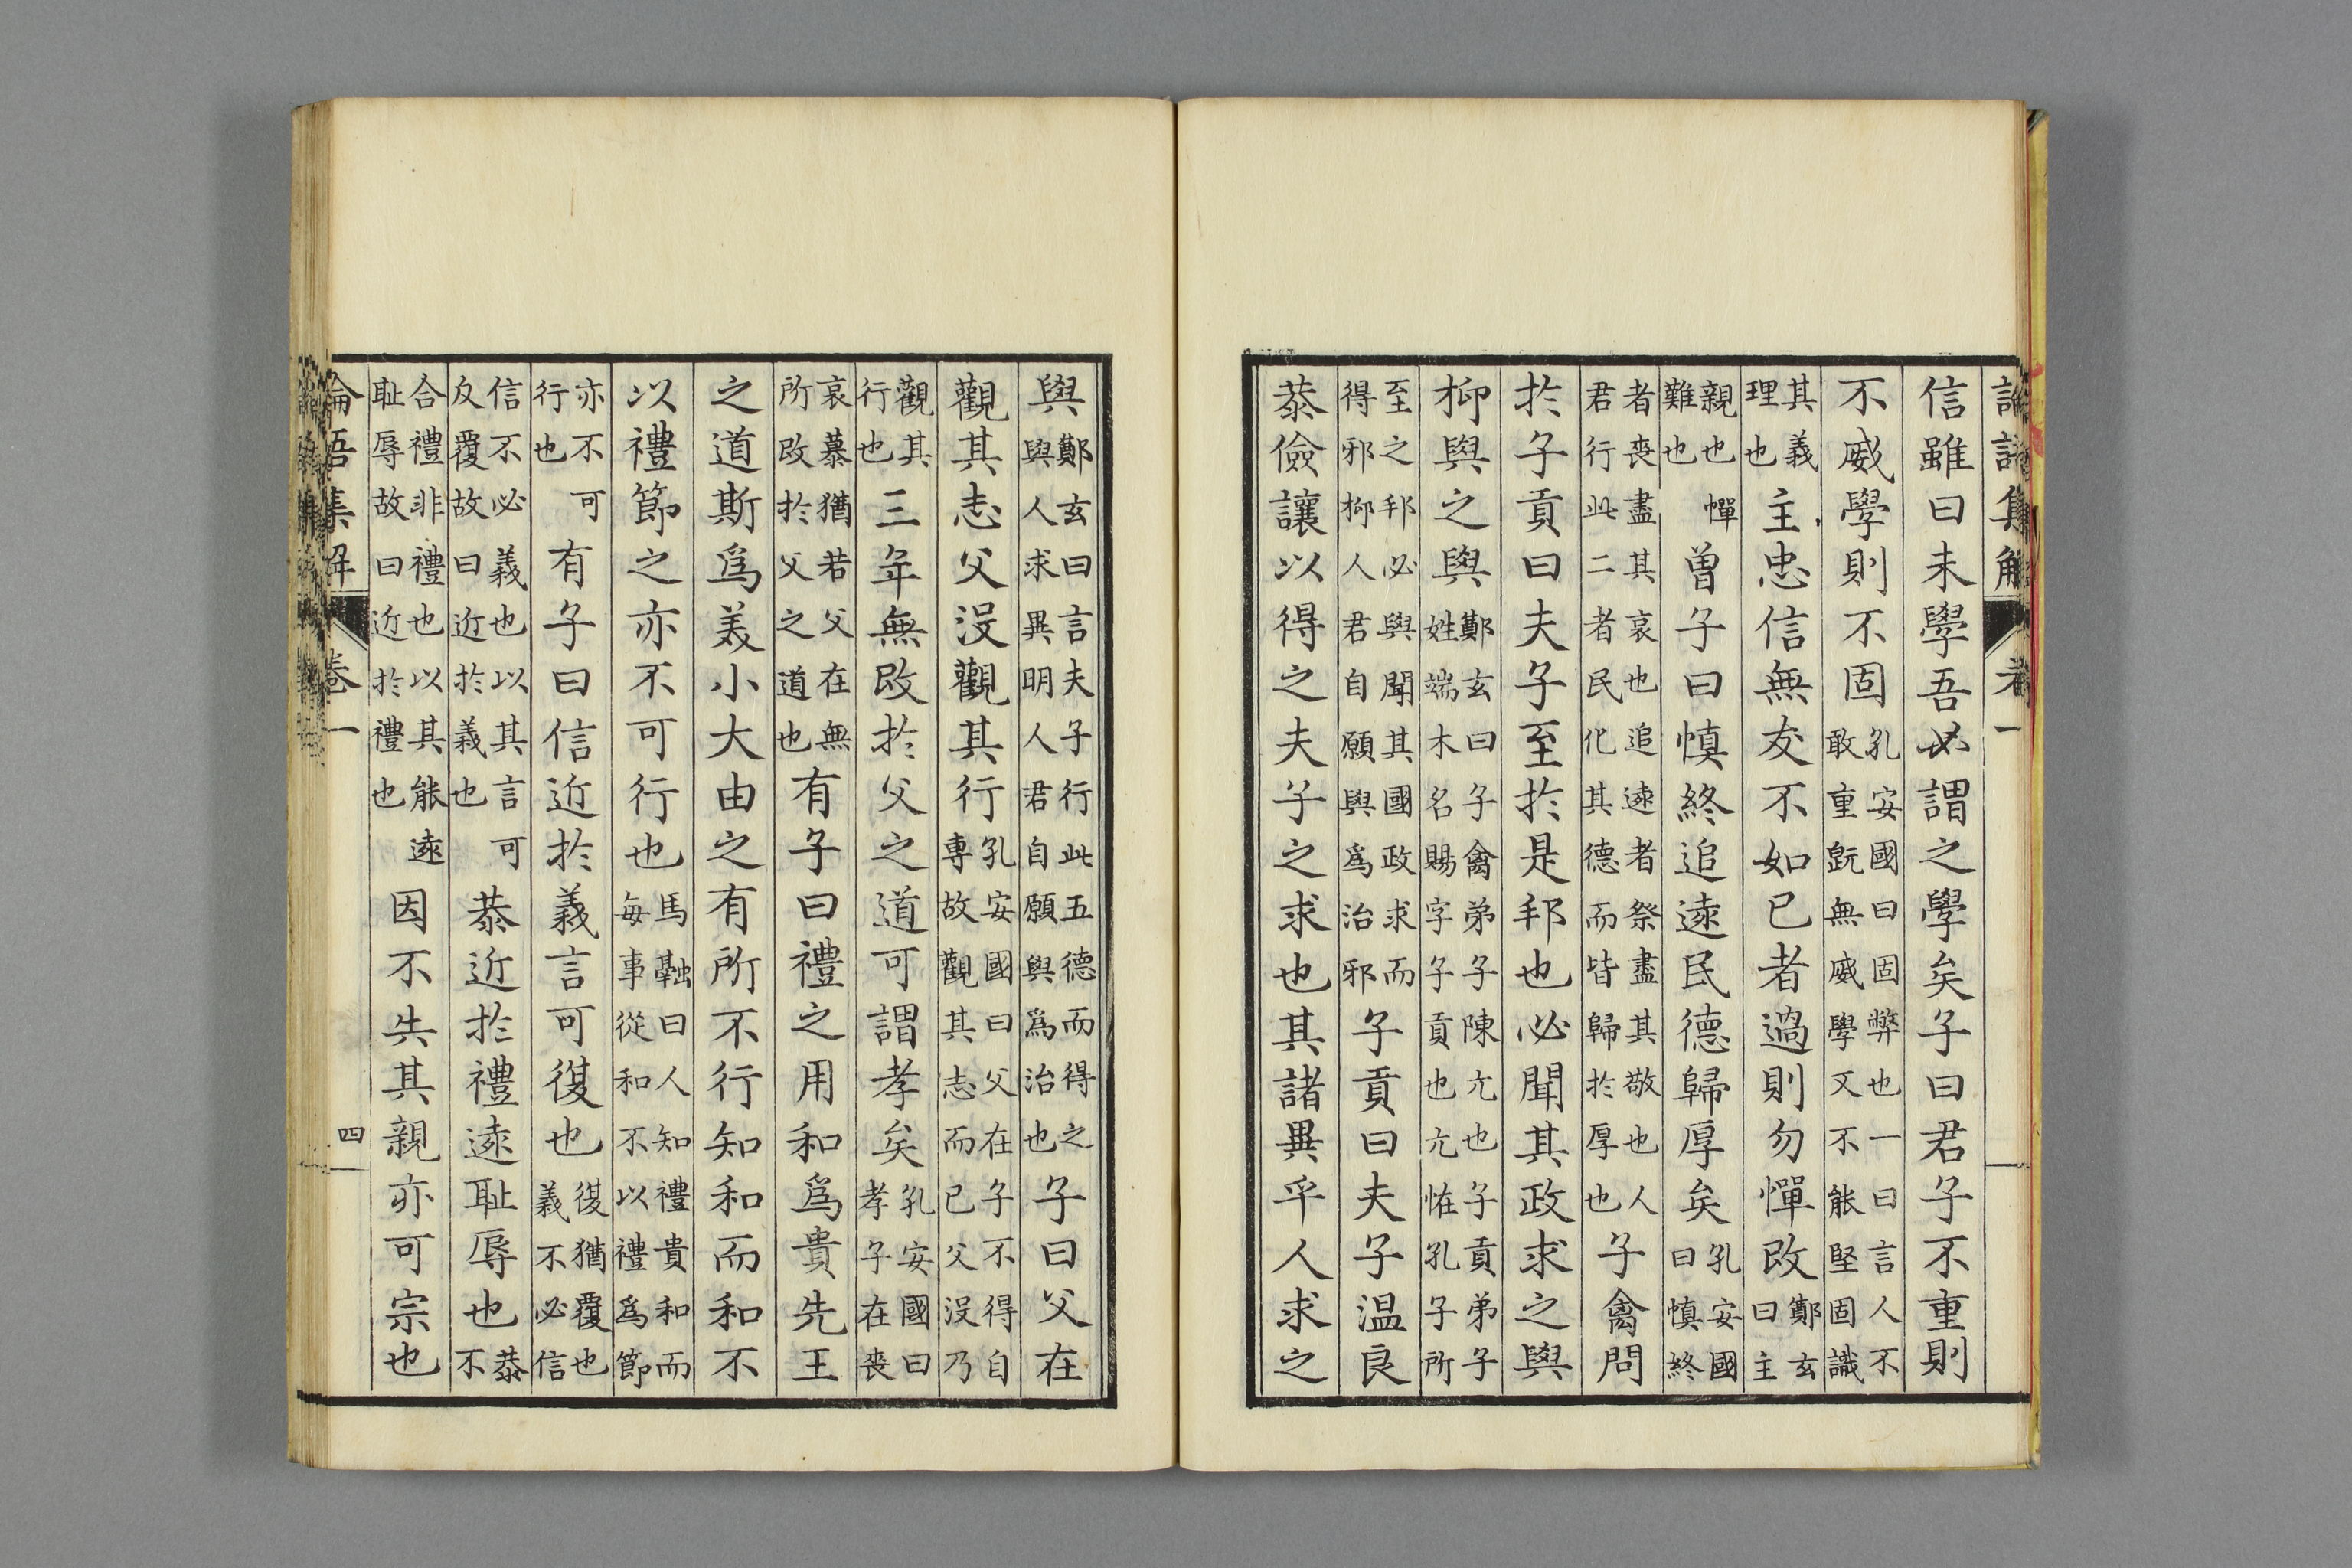 論語集解 卷一
信雖曰未學吾必謂之學矣子曰君子不重則
不威學則不固孔安國曰固弊也一曰言人不敢重旣無威學又不能堅固識
其義理也主忠信無友不如己者過則勿憚改鄭玄曰主
親也憚難也曾子曰慎終追遠民德歸厚矣孔安國曰慎終
者喪盡其哀也追遠者祭盡其敬也人君行此二者民化其德而皆歸於厚也子禽問
於子貢曰夫子至於是邦也必聞其政求之與
抑與之與鄭玄曰子禽弟子陳亢也子貢弟子姓端木名賜字子貢也亢恠孔子所
至之邦必與聞其國政求而得邪抑人君自願與爲治邪子貢曰夫子温良
恭儉讓以得之夫子之求也其諸異乎人求之
與鄭玄曰言夫子行此五德而得之與人求異明人君自願與爲治也子曰父在
觀其志父没觀其行孔安國曰父在子不得自專故觀其志而已父没乃
觀其行也三年無改於父之道可謂孝矣孔安國曰孝子在喪
哀慕猶若父在無所改於父之道也有子曰禮之用和爲貴先王
之道斯爲美小大由之有所不行知和而和不
以禮節之亦不可行也馬融曰人知禮貴和而每事從和不以禮爲節
亦不可行也有子曰信近於義言可復也復猶覆也義不必信
信不必義也以其言可反覆故曰近於義也恭近於禮遠耻辱也恭不
合禮非禮也以其能遠耻辱故曰近於禮也因不失其親亦可宗也
論語集解 卷一 四